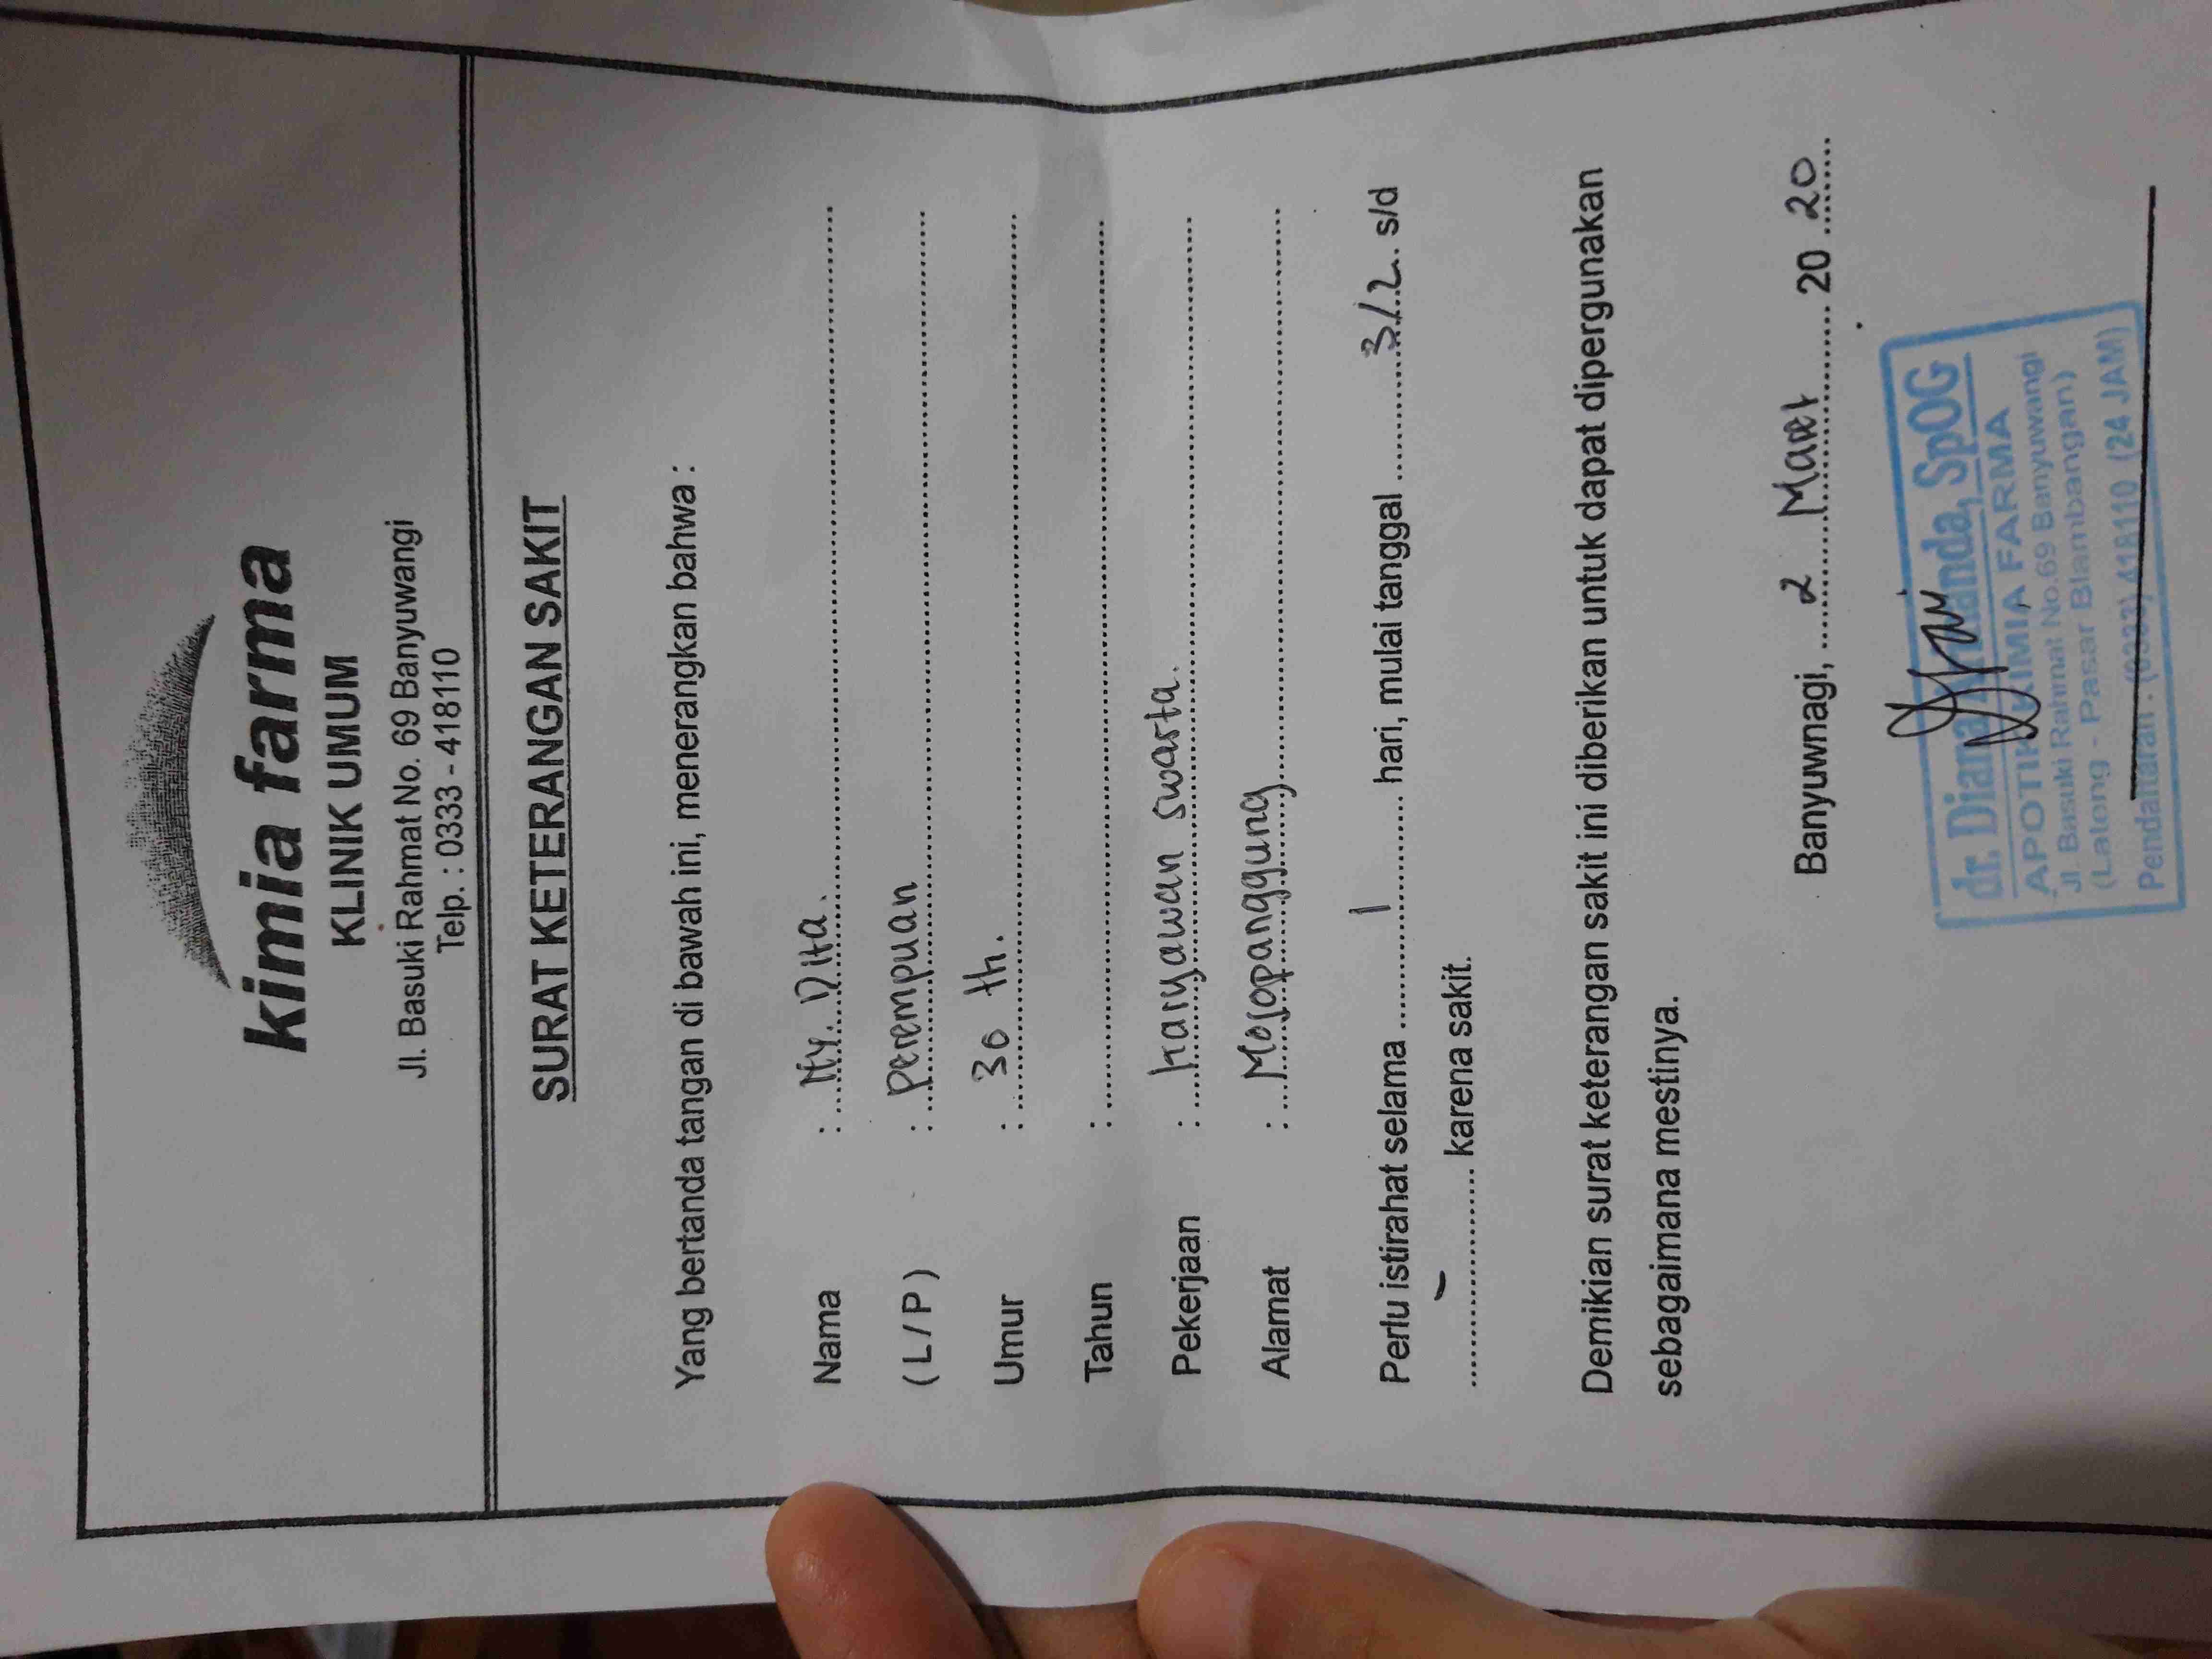 kimia farma
KLINIK UMUM
Jl. Basuki Rahmat No. 69 Banyuwangi
Telp. : 0333 - 418110
SURAT KETERANGAN SAKIT
Yang bertanda tangan di bawah ini, menerangkan bahwa :
Nama : Ny. Dita.
(L/P) : Perempuan
Umur : 30 th.
Tahun :
Pekerjaan : Karyawan swasta.
Alamat : Mojopanggung
Perlu istirahat selama 1 hari, mulai tanggal 3/2 s/d
- karena sakit.
Demikian surat keterangan sakit ini diberikan untuk dapat dipergunakan
sebagaimana mestinya.
Banyuwnagi, 2 Maret 20 20
dr. Diana SpOG
APOTIK KIMIA FARMA
Jl. Basuki Rahmat No.69 Banyuwangi
(Lateng - Pasar Blambangan)
Pendaftaran : (0333) 418110 (24 JAM)